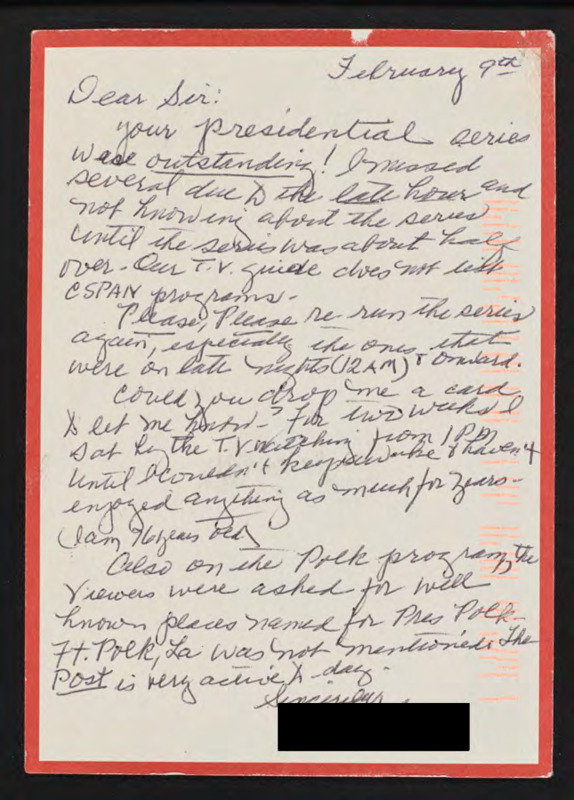 February 9th
Dear Sir:
Your presidential series
were outstanding! I missed
several due to the late hour and
not knowing about the series
until the series was about half
over. Our T.V. guide does not list
CSPAN programs.
Please, Please re-run the series
again, especially the ones that
were on late nights (12 AM) & onward.
Could you drop me a card
to let me know - For two weeks I
sat by the T.V. watching from 1 PM
until I couldn't keep awake & haven't
enjoyed anything as much for years -
(I am 76 years old)
Also on the Polk program, the
viewers were asked for well
known places named for Pres Polk -
Ft. Polk, La was not mentioned. The
Post is very active to-day.
Sincerely,